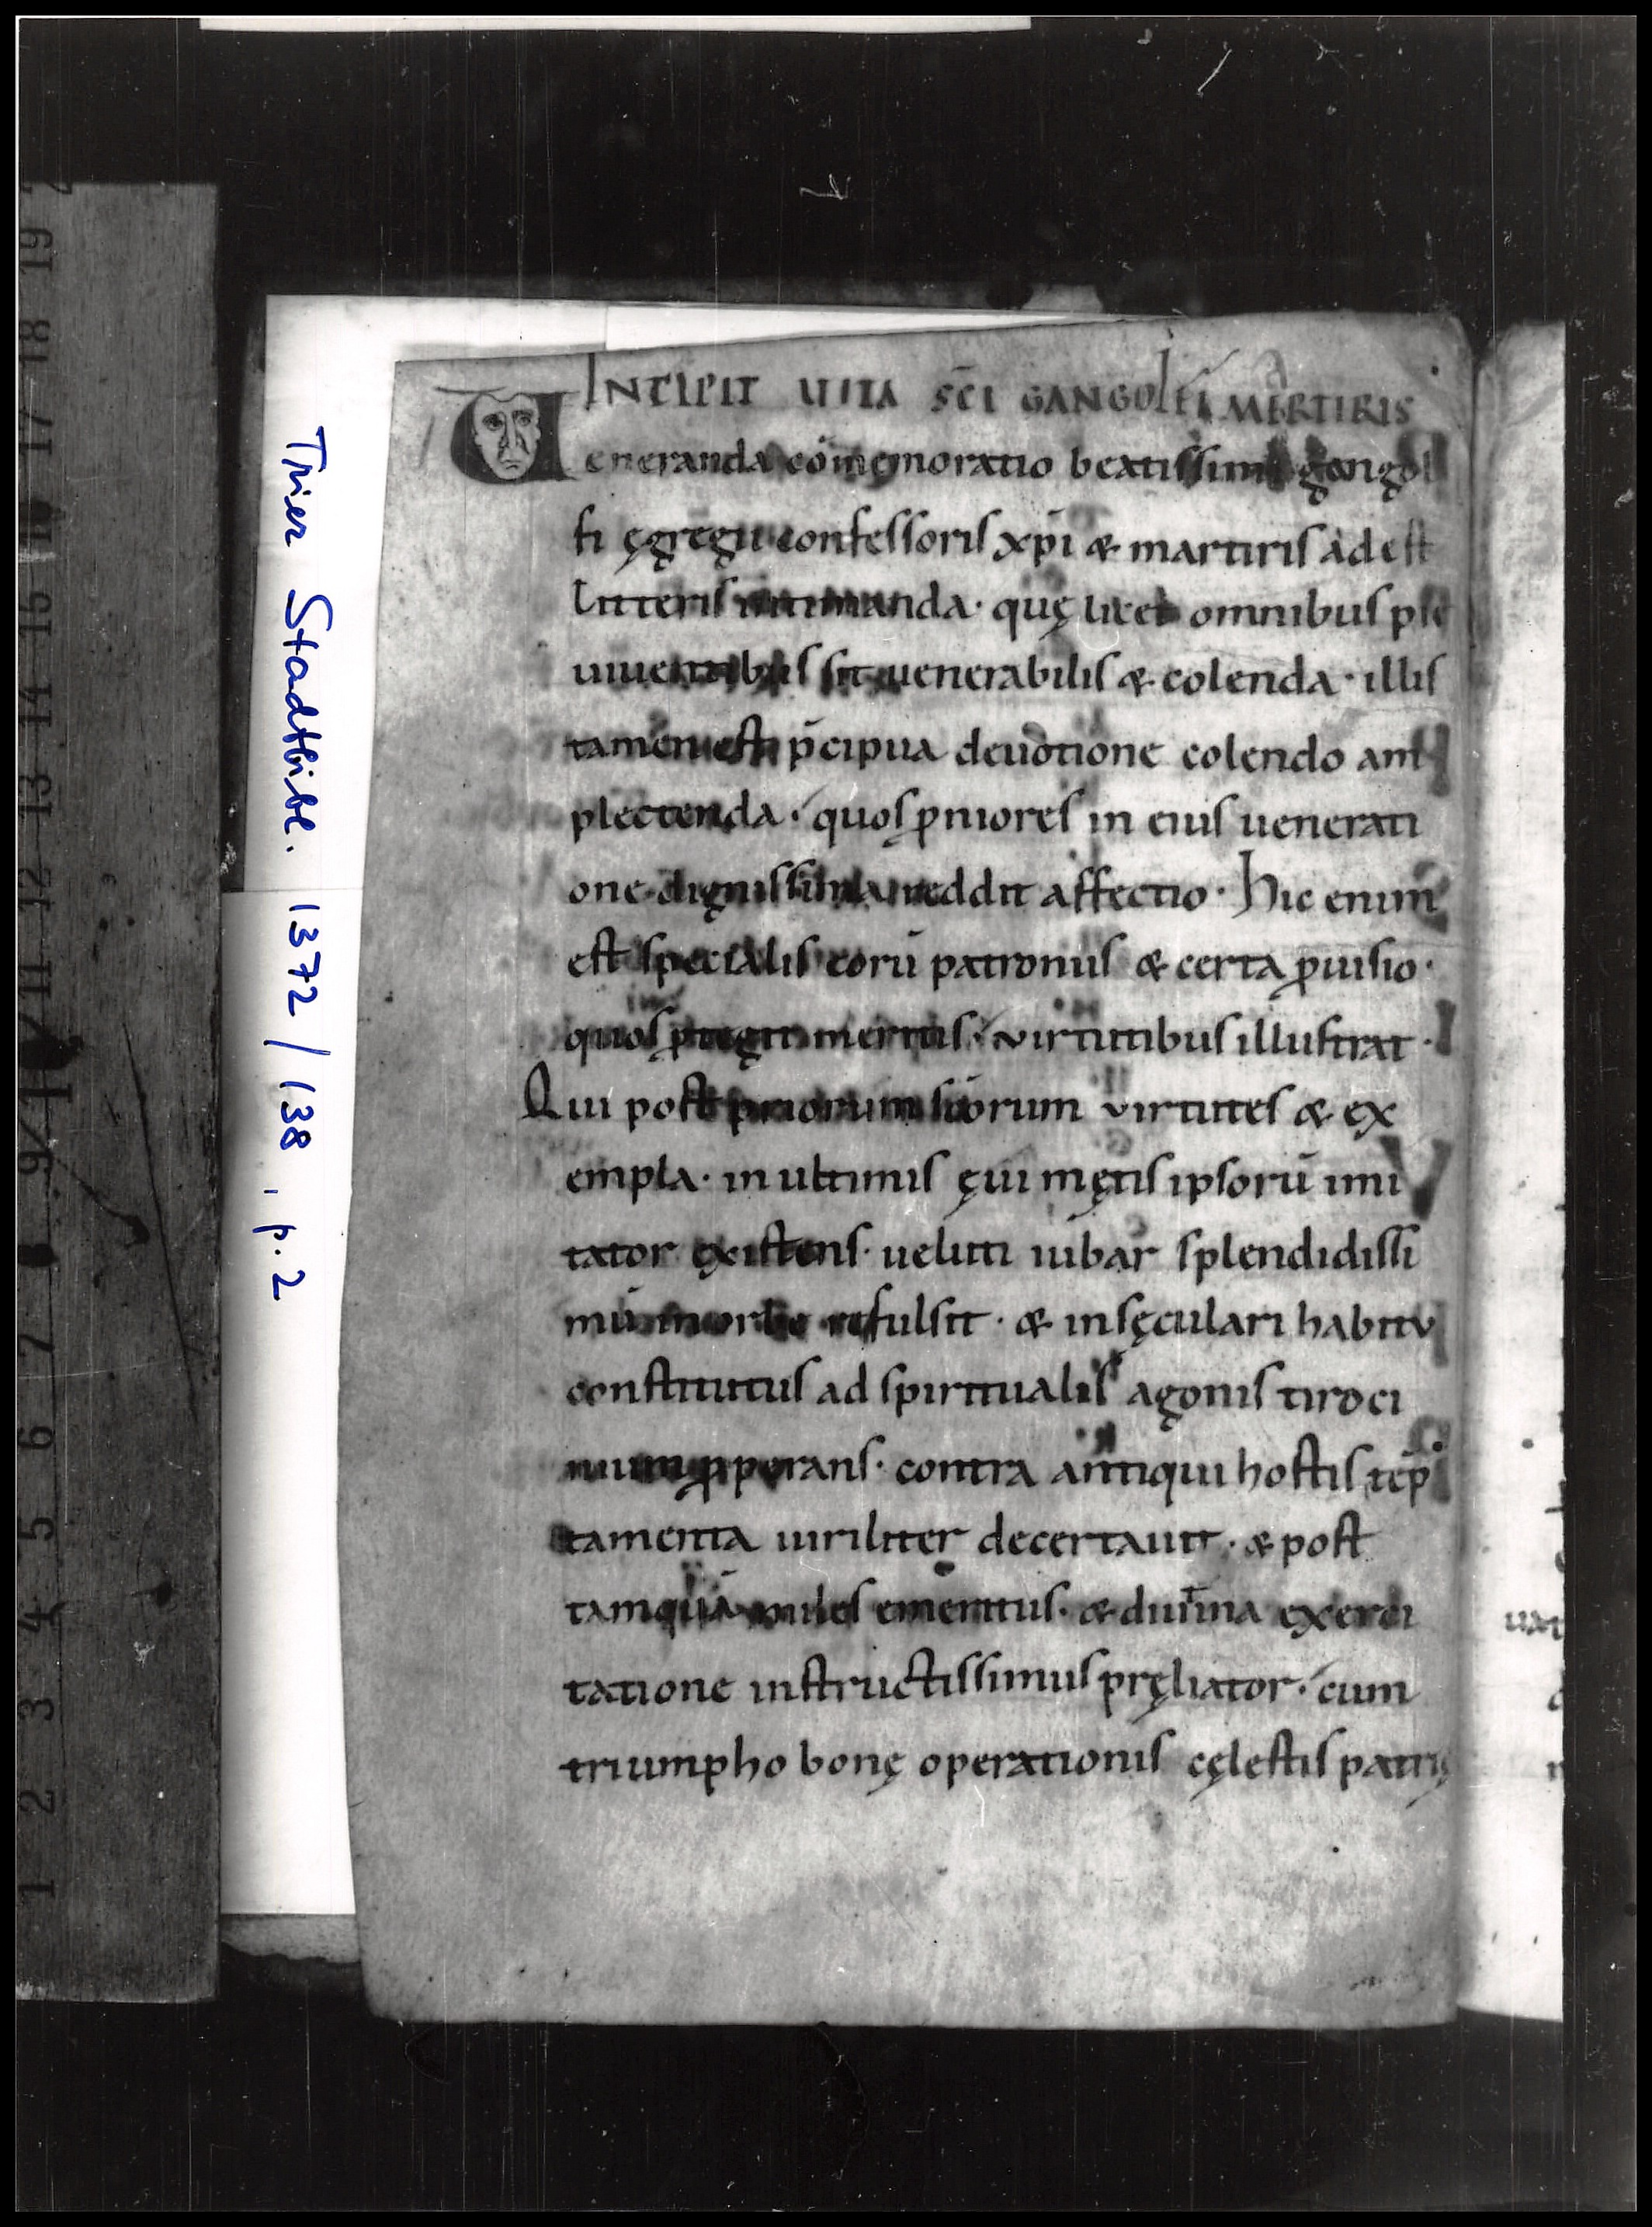 INCIPIT UITA SC̄I GANGOLFI MARTIRIS
Ueneranda com̄emoratio beatissimi gongol
fi ęgregii confessoris xp̄i & martiris adest
Litteris intimanda · quę licet omnibus pie
uiuentibus sit uenerabilis & colenda · illis
tamen est p̄cipua deuotione colendo am
plectenda · quos ꝓniores in eius uenerati
one dignissima reddit affectio · Hic enim
est specialis eorū patronus & certa ꝓuisio ·
quos ꝓtegit meritis · virtutibus illustrat ·
Qui post priorum suorum virtutes & ex
empla · in ultimis ęui mętis ipsorū imi
tator existens · ueluti iubar splendidissi
mū in orbe refulsit · & in sęculari habitu
constitutus ad spiritualis agonis tiroci
nium ꝓperans · contra antiqui hostis tēp
tamenta uiriliter decertauit · & post
tamquā miles emeritus · & diutina exerci
tatione instructissimus pręliator · cum
triumpho bonę operationis cęlestis patrię
Trier Stadtbibl. 1372 / 138, p. 2
1 2 3 4 5 6 7 8 9 10 11 12 13 14 15 16 17 18 19